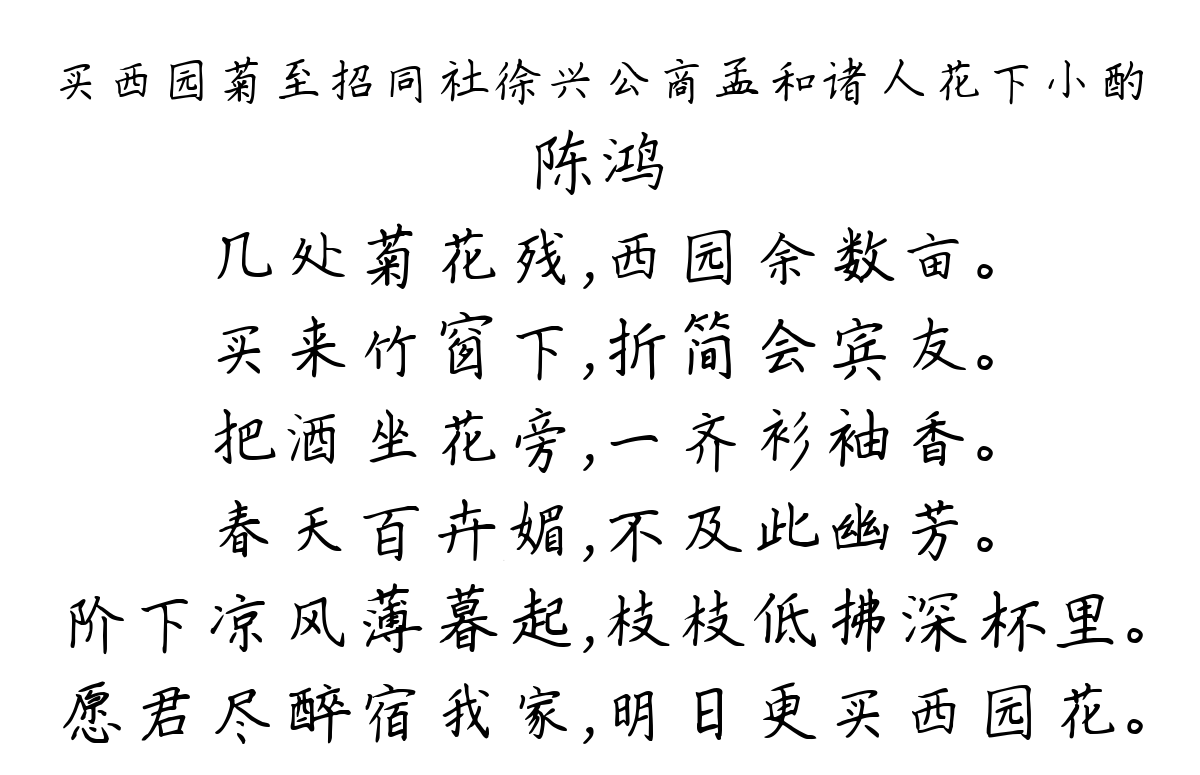 买西园菊至招同社徐兴公商孟和诸人花下小酌
陈鸿
几处菊花残,西园余数亩。
买来竹窗下,折简会宾友。
把酒坐花旁,一齐衫袖香。
春天百卉媚,不及此幽芳。
阶下凉风薄暮起,枝枝低拂深杯里。
愿君尽醉宿我家,明日更买西园花。